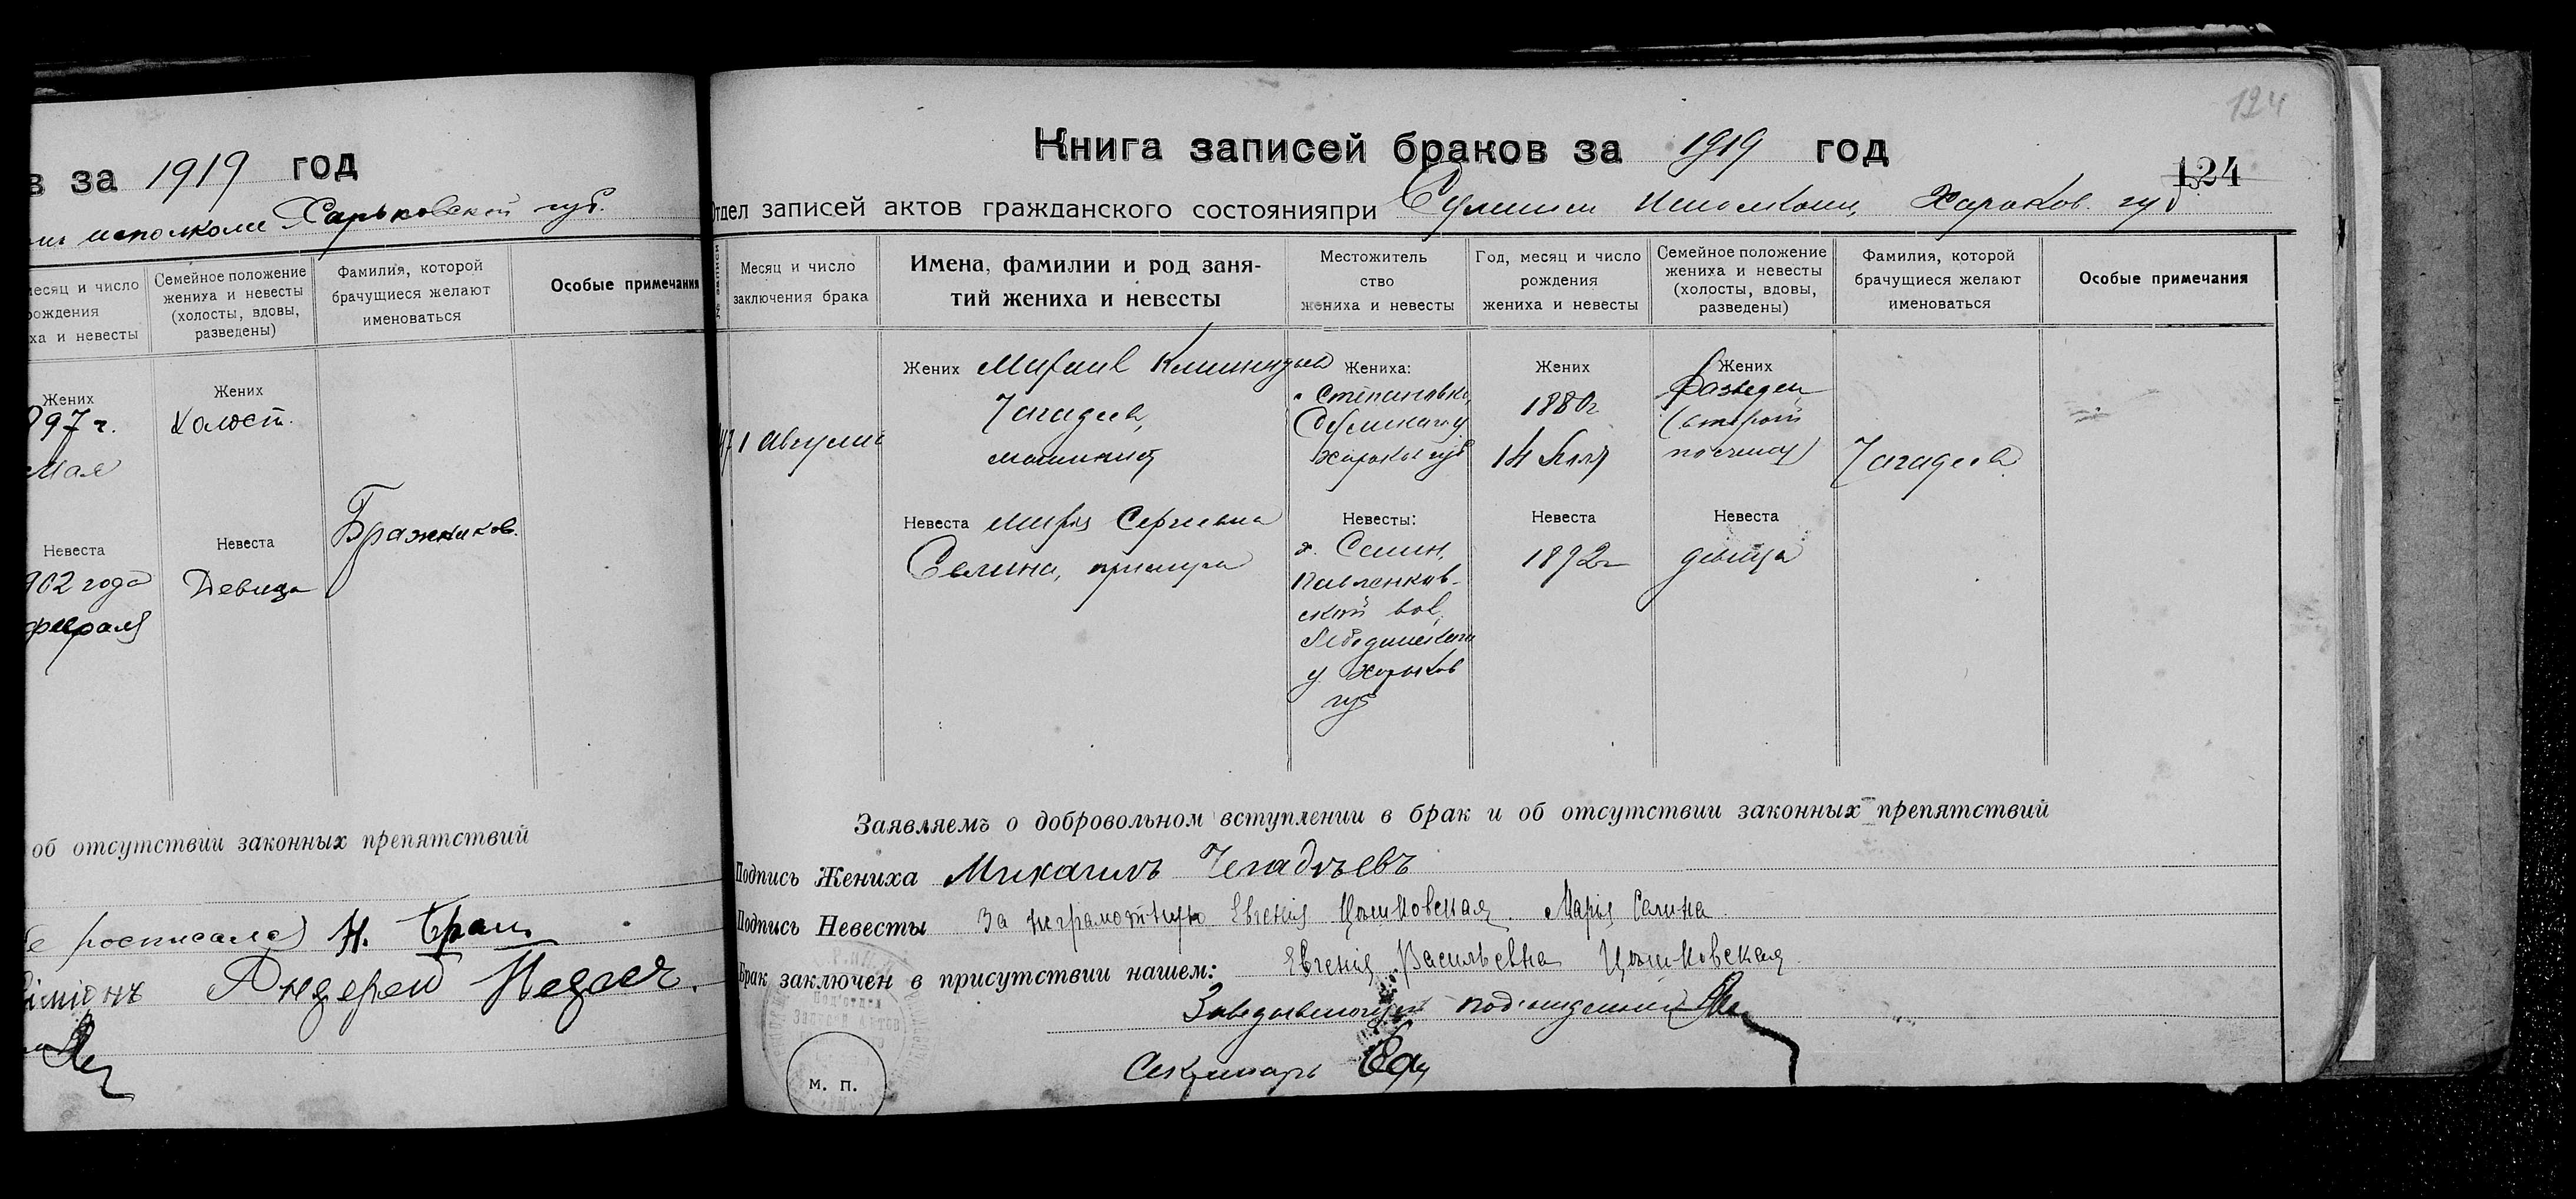 в за 1919 год
исполкоме Харьковской губ.
месяц и число
рождения
ха и невесты
Семейное положение
жениха и невесты
(холосты, вдовы,
разведены)
Фамилия, которой
брачущиеся желают
именоваться
Особые примечания
Жених
897 г.
Мая
Жених
Холост.
Бражников.
Невеста
902 года
февраля
Невеста
Девица
об отсутствии законных препятствий
росписался Н. Браж
Андрей
124
Книга записей браков за 1919 год
124
Отдел записей актов гражданского состоянияпри Сумском Исполкоме, Харьков. губ
№ записи
Месяц и число
заключения брака
Имена, фамилии и род заня-
тий жениха и невесты
Местожитель
ство
жениха и невесты
Год, месяц и число
рождения
жениха и невесты
Семейное положение
жениха и невесты
(холосты, вдовы,
разведены)
Фамилия, которой
брачущиеся желают
именоваться
Особые примечания
47
1 Августа
Жених Михаил
Чагадеев,
машинист
Жениха:
Степановка,
Сумского у
Харьков губ
Жених
1880г
14
Жених
Разведен
(второй
Чагадеев
Невеста Мария Сергеевна
Селина, прислуга
Невесты:
Павленков-
ской вол,
Лебединского
у Харьков
губ
Невеста
1892г
Невеста
девица
Заявляемъ о добровольном вступлении в брак и об отсутствии законных препятствий
Подпись Жениха Михаилъ Чегадъевъ
Подпись Невесты За неграмотную Евгенія Цышковская. Марія Салина
Брак заключен в присутствии нашем: Евгенія Васильевна Цышковская
Заведывающий под'отделом
Секретарь
Под'отдел
Записи Актов
м. п.